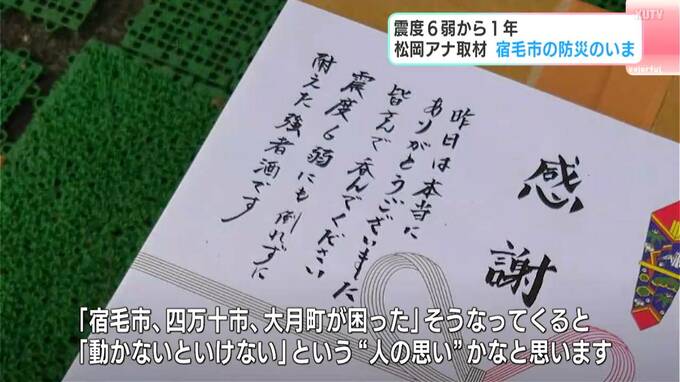 KUTV
colorful
震度６弱から１年
松岡アナ取材 宿毛市の防災のいま
感謝
昨日は本当に
ありがとうございました
皆さんで呑んでください
震度6弱にも倒れずに
耐えた強者酒です
「宿毛市、四万十市、大月町が困った」そうなってくると
「動かないといけない」という“人の思い”かなと思います